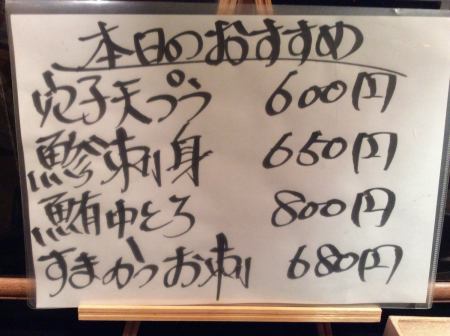 本日のおすすめ
穴子天プラ 600円
鯵刺身 650円
鮪中とろ 800円
すまがつお刺 680円